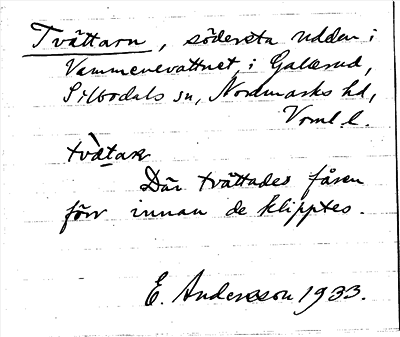 Tvättarn, södersta udden i
Vammenevattnet i Gallerud,
Silbodals sn, Nordmarks hd,
Vrml. l.
tvä̀tar
Där tvättades fåren
förr innan de klipptes.
E. Andersson 1933.